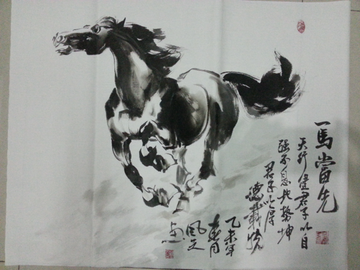 一馬當先
天行健君子以自
强不息地勢坤
君子以厚
德載物
乙未年
春月